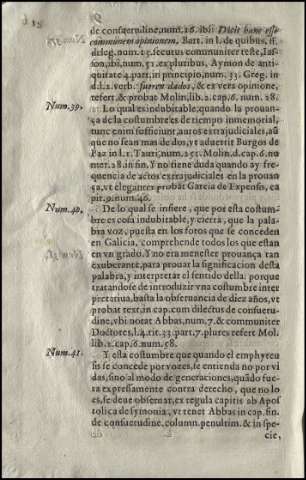 de consuetudine, num. 16. ibi: Dicit hanc esse
communem opinionem, Bart. in l. de quibus, ff.
de leg. num. 15. secutus communiter teste, Ias-
son, ibi, num. 51. ex pluribus, Aymon de anti-
quitate 4. part. in principio, num. 33. Greg. in
d. l. 2. verb. fueren dados, & ex vero opinione,
refert, & probat Molin, lib. 2. cap. 6. num. 28.
Num. 39. Lo qual es indubitable, quando la prouan-
ça de la costumbre es de tiempo inmemorial,
tunc enim sufficiunt, auros extrajudiciales, aũ
que no sean mas de dos, vt aduertit Burgos de
Paz in l. 1. Tauri, num. 251. Molin. d. cap. 6. nu
mer. 28. in fin. Y no tiene duda quando ay fre-
quencia de actos extrajudiciales en la prouan
ça, vt eleganter probat Garcia de Expensis, ca
pit. 9. num. 46.
Num. 40. De lo qual se infiere, que por esta costum-
bre es cosa indubitable, y cierta, que la pala-
bra voz, puesta en los foros que se conceden
en Galicia, comprehende todos los que estan
en vn grado. Y no era menester prouança tan
exuberante, para prouar la significacion desta
palabra, y interpretar el sentido della: porque
tratandose de introduzir vna costumbre inter
pretatiua, basta la obseruancia de diez años, vt
probat text, in cap. cum dilectus de consuetu-
dine, vbi notat Abbas, num. 7. & communiter
Doctores, l. 4. tit. 33. part. 7. plures refert Mol.
lib. 2. cap. 6. num. 58.
Num. 41. Y esta costumbre que quando el emphyteu
sis se concede por vozes, se entienda no por vi
das, sino al modo de generaciones, quãdo fue-
ra expressamente contra derecho, que no lo
es, se deue obseruar, ex regula capitis ab Apos
tolica de symonia, vt tenet Abbas in cap. fin.
de consuetudine, column. penultim. & in spe-
cie,